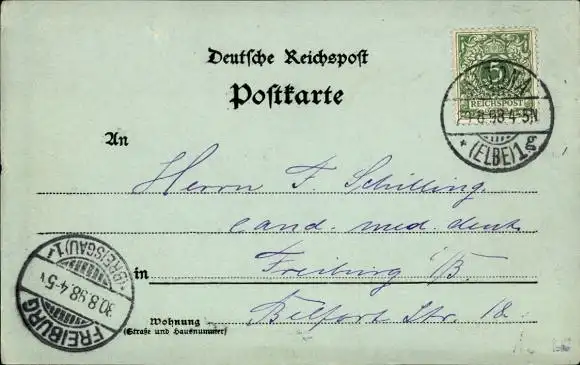 Deutsche Reichspost
Postkarte
5
REICHSPOST
8.98.4-5N
* (ELBE) 1g
An
Herrn F. Schilling
cand. med. dent.
in Freiburg i/B.
Wohnung
(Straße und Hausnummer)
Belfort Str. 18.
FREIBURG
30.8.98.4-5N
(BREISGAU) 1.